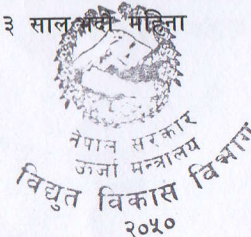 ३ साल
महिना
नेपाल सरकार
ऊर्जा मन्त्रालय
विद्युत विकास विभाग
२०५०